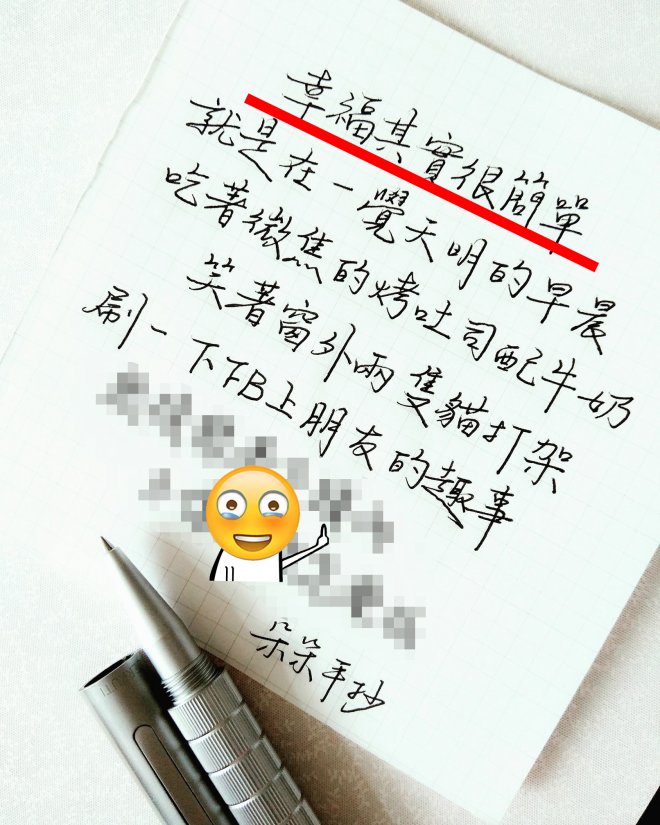 幸福其實很簡單
就是在一覺天明的早晨
吃著微焦的烤吐司配牛奶
笑著窗外兩隻貓打架
刷一下FB上朋友的趣事
朵朵手抄